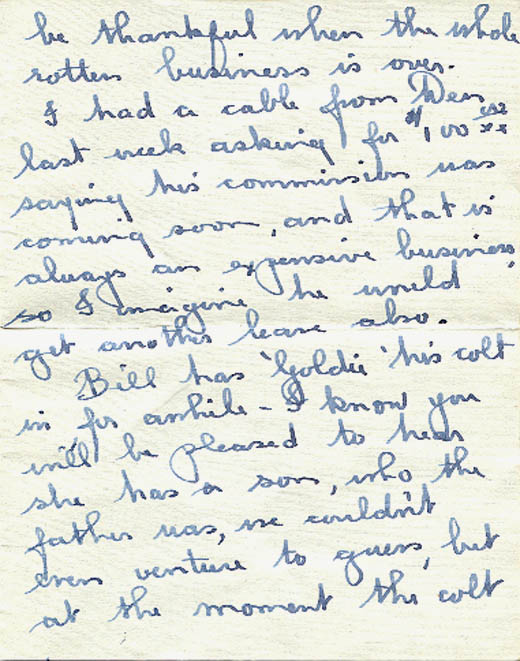 be thankful when the whole
rotten business is over.
I had a cable from Den
last week asking for $100
saying his commission was
coming soon, and that is
always an expensive business,
so I imagine he would
get another leave also.
Bill has 'Goldie' his colt
in for awhile - I know you
will be pleased to hear
she has a son, who the
father was, we couldn't
even venture to guess, but
at the moment the colt